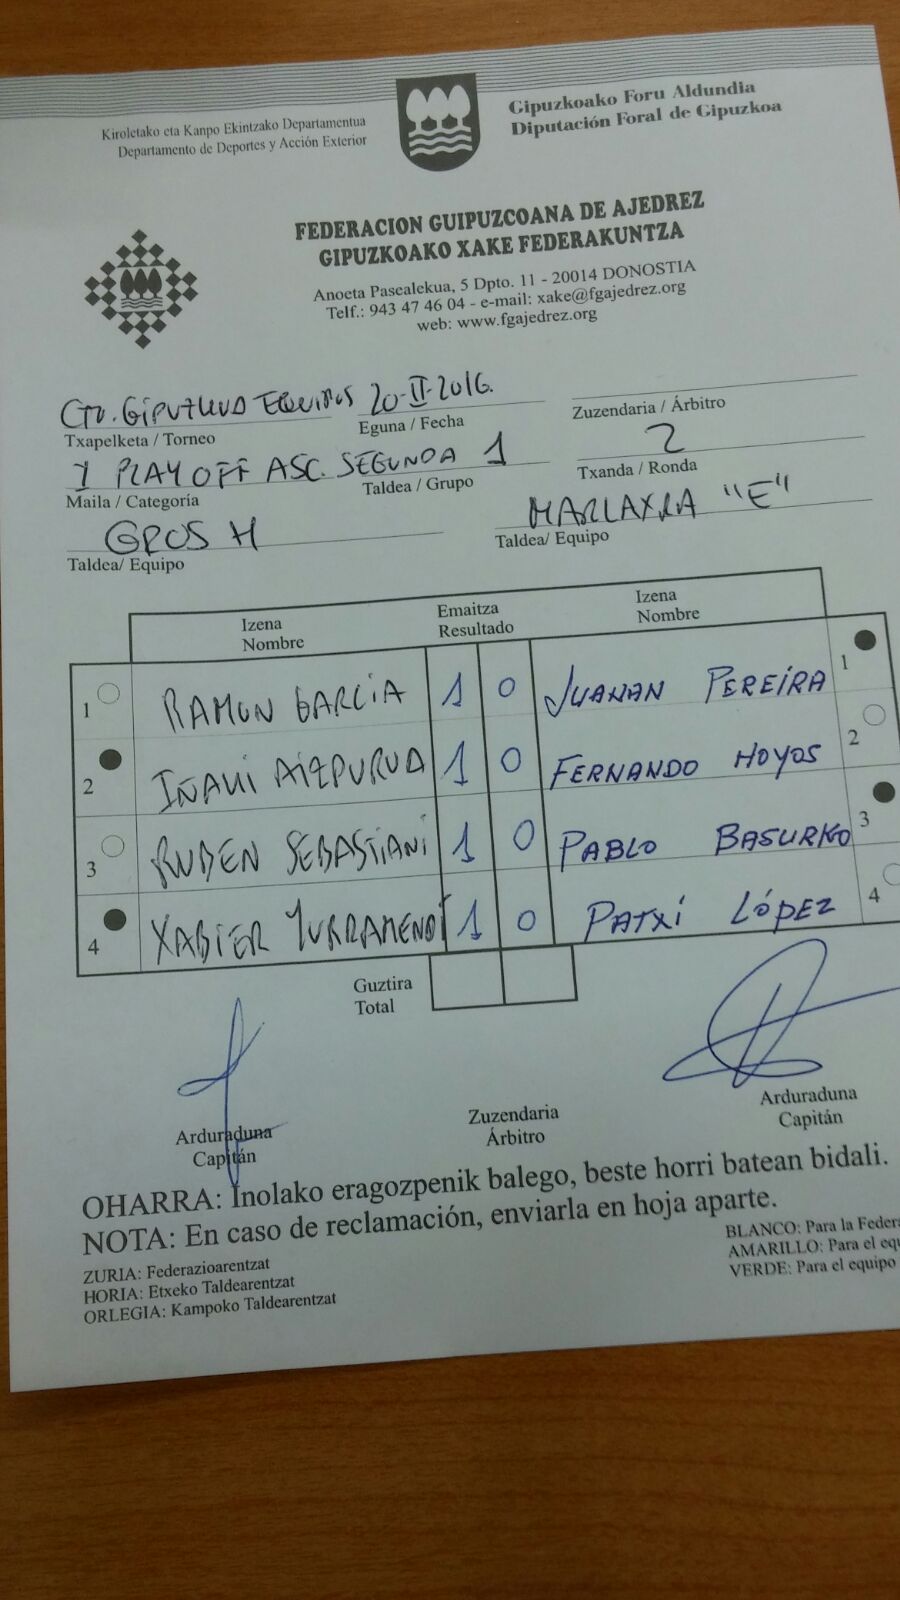 Kiroletako eta Kanpo Ekintzako Departamentua
Departamento de Deportes y Acción Exterior
Gipuzkoako Foru Aldundia
Diputación Foral de Gipuzkoa
FEDERACION GUIPUZCOANA DE AJEDREZ
GIPUZKOAKO XAKE FEDERAKUNTZA
Anoeta Pasealekua, 5 Dpto. 11 - 20014 DONOSTIA
Telf.: 943 47 46 04 - e-mail: xake@fgajedrez.org
web: www.fgajedrez.org
CTO. GIPUZKOA EQUIPOS 20-II-2016.
Txapelketa / Torneo Eguna / Fecha Zuzendaria / Árbitro
I PLAY OFF ASC. SEGUNDA 1 2
Maila / Categoría Taldea / Grupo Txanda / Ronda
GROS H MARLAXKA "E"
Taldea/ Equipo Taldea/ Equipo
Izena Emaitza Izena
Nombre Resultado Nombre
1 RAMON GARCIA 1 0 JUANAN PEREIRA 1
2 IÑAKI AIZPURUA 1 0 FERNANDO HOYOS 2
3 RUBEN SEBASTIANI 1 0 PABLO BASURKO 3
4 XABIER YURRAMENDI 1 0 PATXI LÓPEZ 4
Guztira
Total
Arduraduna Zuzendaria Arduraduna
Capitán Árbitro Capitán
OHARRA: Inolako eragozpenik balego, beste horri batean bidali.
NOTA: En caso de reclamación, enviarla en hoja aparte.
ZURIA: Federazioarentzat BLANCO: Para la Federa
HORIA: Etxeko Taldearentzat AMARILLO: Para el equ
ORLEGIA: Kampoko Taldearentzat VERDE: Para el equipo